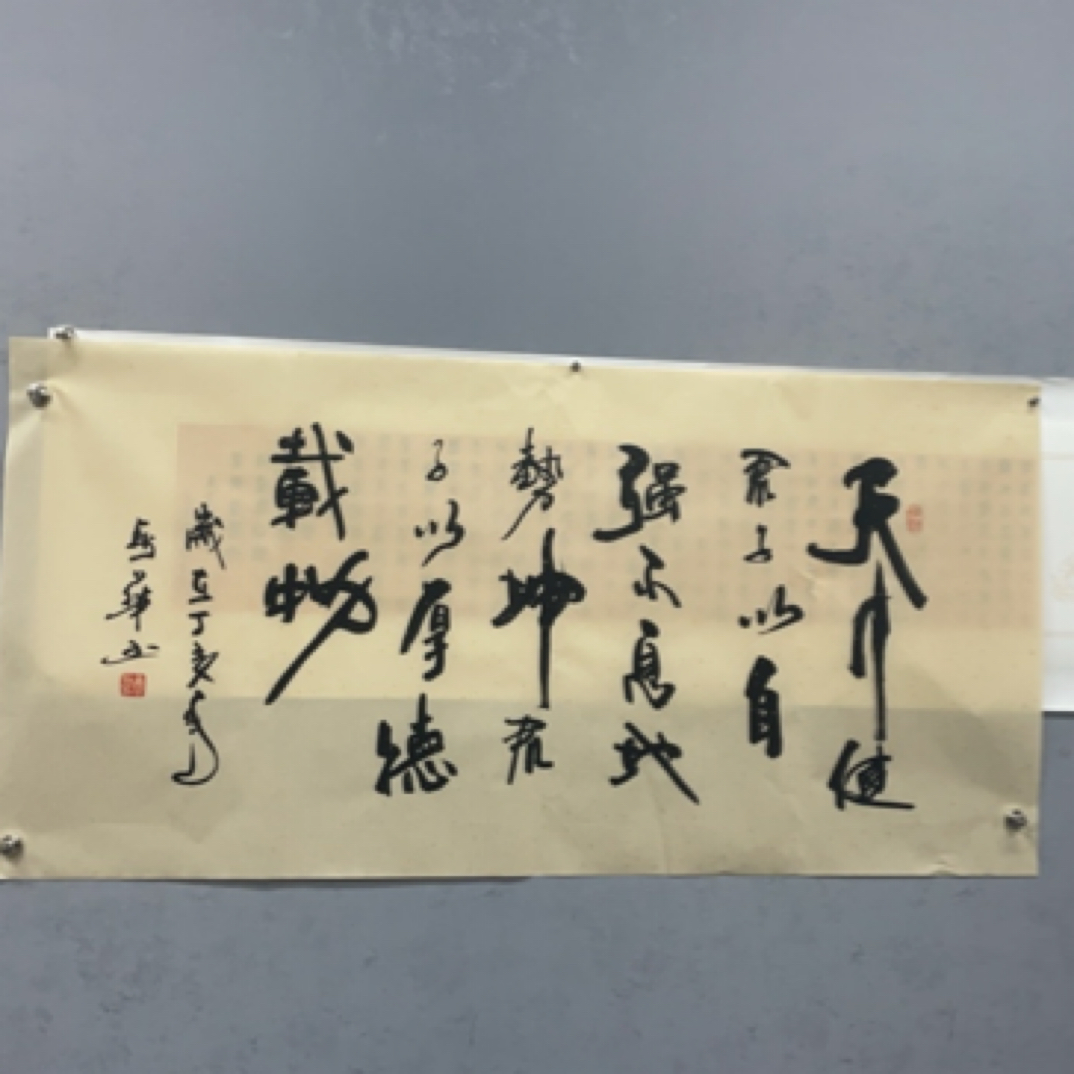 天行健
君子以自
强不息地
勢坤君
子以厚德
載物
歲在丁亥
華书